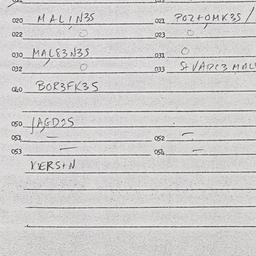 020 MALIN3S 021 POZTOMK3S /
022 0 023 0
030 MALE3N3S 031 0
032 0 033 STVARC3 MAL
040 BOR3FK3S
050 JAGD3S
051 — 052 —
053 — 054 —
KERSTN